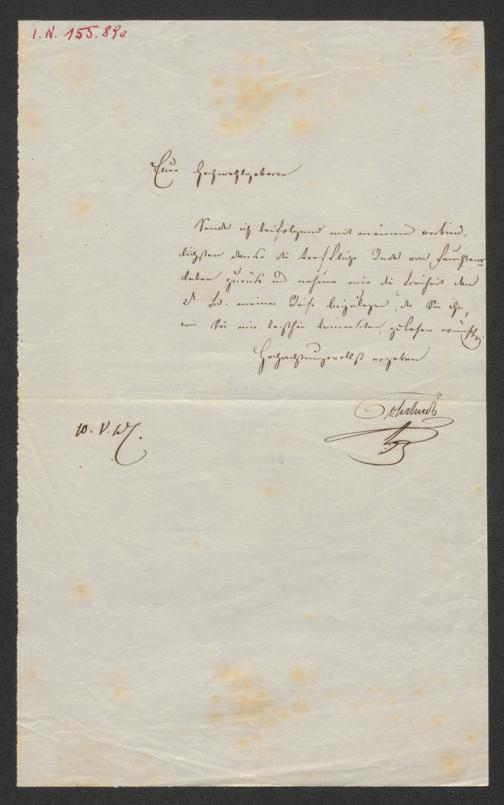 I.N. 155.890
Euer Hochwohlgeboren
Sende ich beifolgend mit meinem verbind,
lichsten Danke die treffliche Rede von Feuchters=
leben zurück und nehme mir die Freiheit den
2t Bd. meiner Reise beizulegen, da Sie ihn,
wie Sie mir letzthin bemerkten, zu lesen wünschten.
Hochachtungsvollst ergeben
10. V. 47.